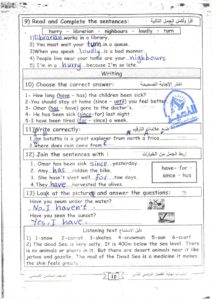 9) Read and Complete the sentences: اقرأ وأكمل الجمل التالية
hurry - librarian - nighbours - loudly - turn
1) librarian works in a library.
2) You must wait your turn in a queue.
3) When you speak loudly is a bad manner.
4) People live near your home are your nighbours
5) I'm in a hurry because I'm late.
Writing
10) Choose the correct answer: اختر الإجابة الصحيحة
1- How long (have - has) the children been sick?
2- You should stay at home (since - until) you feel better.
3- Omar (has - have) gone to the doctor's.
4- He has been sick (since - for) last night.
5- I have been tired (for - since) a week.
11) Write correctly:
1- ibn batotta is a great explorer from north a frica
2- where does rain come from
12) Join the sentences with اربط الجمل من العبارات
1. Omar has been sick since yesterday.
2. Amy has ridden the bike.
3. She hasn't felt well for two days.
4. They have harvested the olives.
have - for
since - has
13) Look at the picture and answer the questions:
Have you swum under the water?
No, I haven't.
Have you seen the sunset?
Yes, I have.
Listening text
1- snow 2- carrot 3- skates 4- snowman 5- sun 6- scarf
2) The Dead Sea is very salty. It is 400m below the sea level. There is no animals or plants in it. But there are desert animals near it like jerboa and gazelle. The mud of the Dead Sea is a medicine it makes the skin feels great.